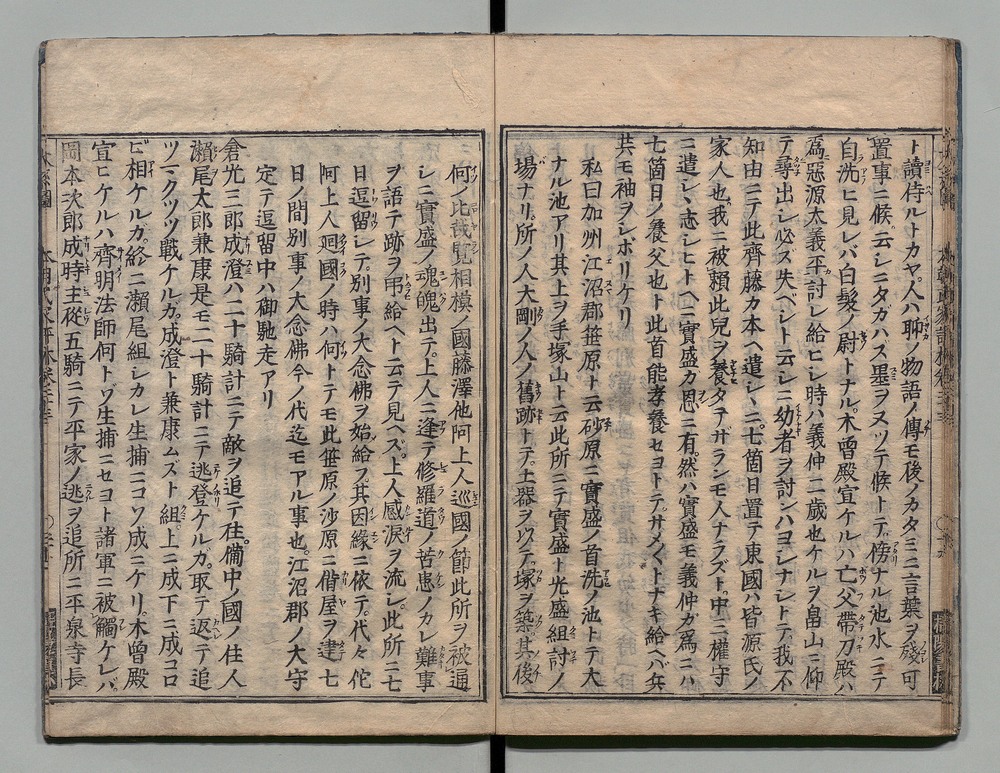 ト讀侍ルトカヤ。人ハ聊ノ物語ノ傳モ後ノカタミニ言葉ヲ殘可
置事ニ候。云シニタガハス墨ヲヌツテ候トテ。傍ナル池水ニテ
自洗ヒ見レバ白髮ノ尉トナル。木曾殿宣ケルハ亡父帶刀殿ハ
爲惡源太義平討レ給ヒシ時ハ義仲二歳也ケルヲ畠山ニ仰
テ尋出シ必ス失ベシト云シニ幼者ヲ討ンハヨシナシトテ。我不
知由ニテ此齊藤カ本ヘ遣シヽニ。七箇日置テ東國ハ皆源氏ノ
家人也。我ニ被頼此兒ヲ養タテザランモ人ナラズト。中三權守
ニ遣シヽ志シヒトヘニ實盛カ恩ニ有。然ハ實盛モ義仲カ爲ニハ
七箇日ノ養父也ト此首能孝養セヨトテ。サメ〳〵トナキ給ヘバ兵
共モ袖ヲシボリケリ
私曰加州江沼郡笹原ト云砂原ニ實盛ノ首洗ノ池トテ大
ナル池アリ其上ヲ手塚山ト云此所ニテ實盛ト光盛組討ノ
場ナリ。所ノ人大剛ノ人ノ舊跡トテ。土器ヲ以テ塚ヲ築其後
何ノ比哉覽相模ノ國藤澤他阿上人巡國ノ節此所ヲ被通
シニ實盛ノ魂魄出テ。上人ニ逢テ修羅道ノ苦患ノカレ難事
ヲ語テ跡ヲ弔給ヘト云テ見ヘズ。上人感淚ヲ流シ。此所ニ七
日逗留シテ。別事ノ大念佛ヲ始給フ。其因緣ニ依テ。代々佗
阿上人廻國ノ時ハ何トテモ此笹原ノ沙原ニ偕屋ヲ建七
日ノ間別事ノ大念佛今ノ代迄モアル事也。江沼郡ノ大守
定テ逗留中ハ御馳走アリ
倉光三郎成澄ハ二十騎計ニテ敵ヲ追テ在。備中ノ國ノ住人
瀨尾太郎兼康是モ二十騎計ニテ逃登ケルカ。取テ返テ追
ツマクツツ戰ケルカ。成澄ト兼康ムズト組。上ニ成下ニ成コロ
ビ相ケルガ。終ニ瀨尾組シカレ生捕ニコソ成ニケリ。木曾殿
宣ヒケルハ齊明法師何トゾ生捕ニセヨト諸軍ニ被觸ケレバ
岡本次郎成時主從五騎ニテ平家ノ逃ヲ追所ニ平泉寺長